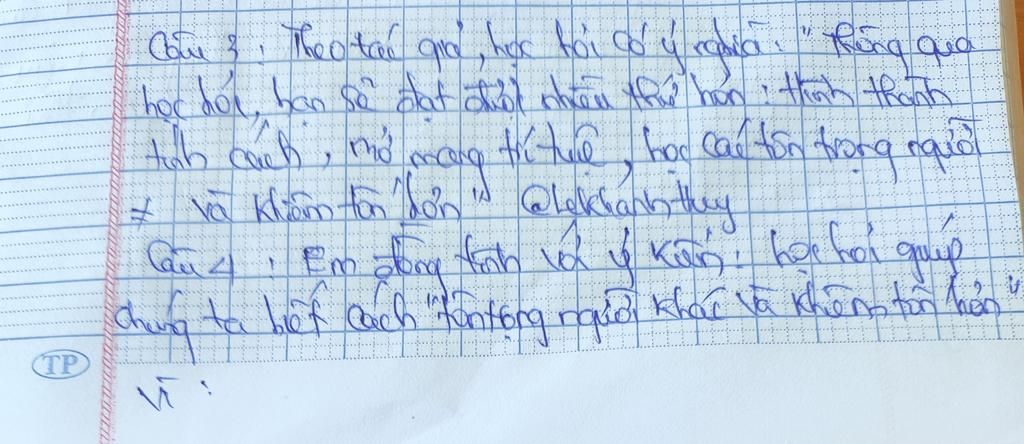 Câu 3: Theo tác giả, học hỏi có ý nghĩa: "Thông qua
học hỏi, bạn sẽ đạt được nhiều thứ hơn: hình thành
tính cách, mở mang trí tuệ, học cách tôn trọng người
≠ và khiêm tốn hơn" @lekhanhthuy
Câu 4: Em đồng tình với ý kiến: học hỏi giúp
chúng ta biết cách "tôn trọng người khác và khiêm tốn hơn"
TP
Vì: